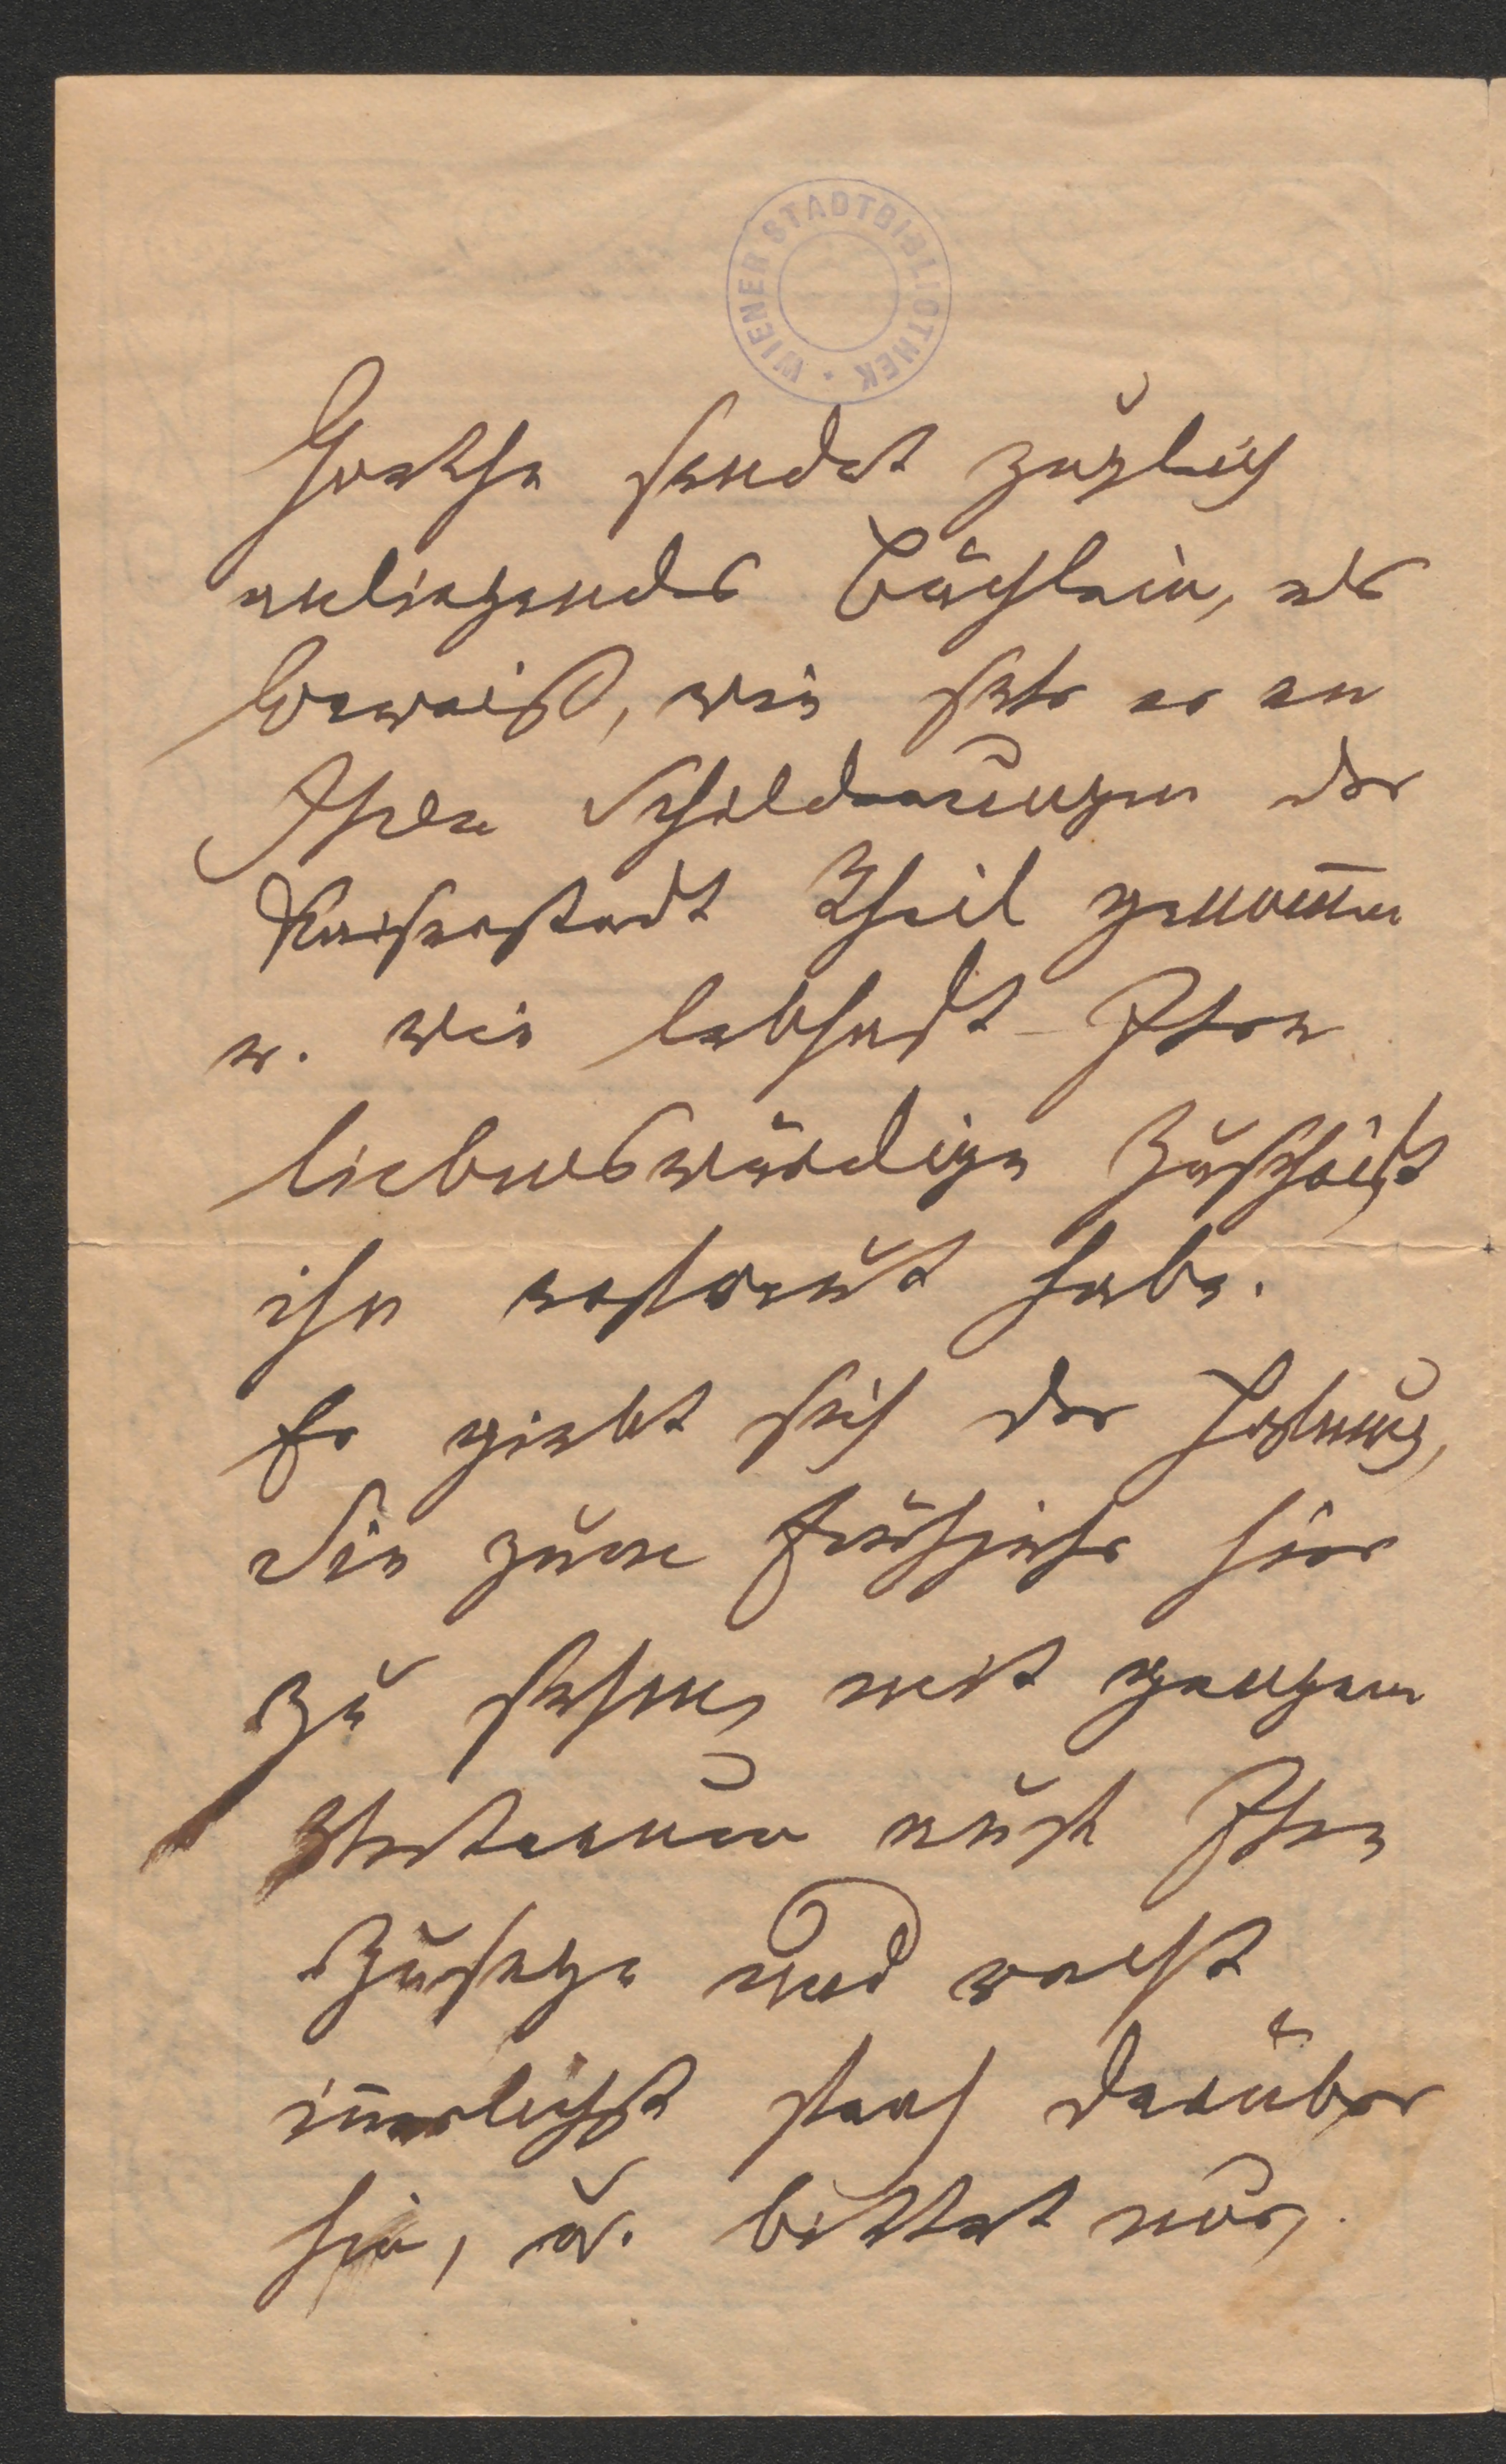 WIENER STADTBIBLIOTHEK
Goethe sendet zugleich
anliegendes Büchlein, als
Beweiß, wie sehr er an
Ihren Schilderungen der
Kaiserstadt Theil genom̅en
u. wie lebhaft Ihre
liebenswürdige Zuschrift
ihn erfreut habe.
Er giebt sich der Hofnung,
Sie zum Frühjahr hier
zu sehen, mit ganzem
Vertrauen auf Ihre
Zusage und
in̅erlichst darüber
hin, u. bittet nur,